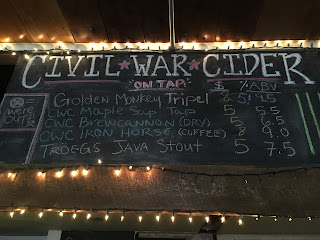 CIVIL★WAR★CIDER
"ON TAP" $ %ABV
Golden Monkey Tripel 5 9.5
CWC Maple Tap 5 5.5
CWC BREWCANNON (DRY) 5 6.5
CWC IRON HORSE (COFFEE) 8 9.0
TROEGS JAVA STOUT 5 7.5